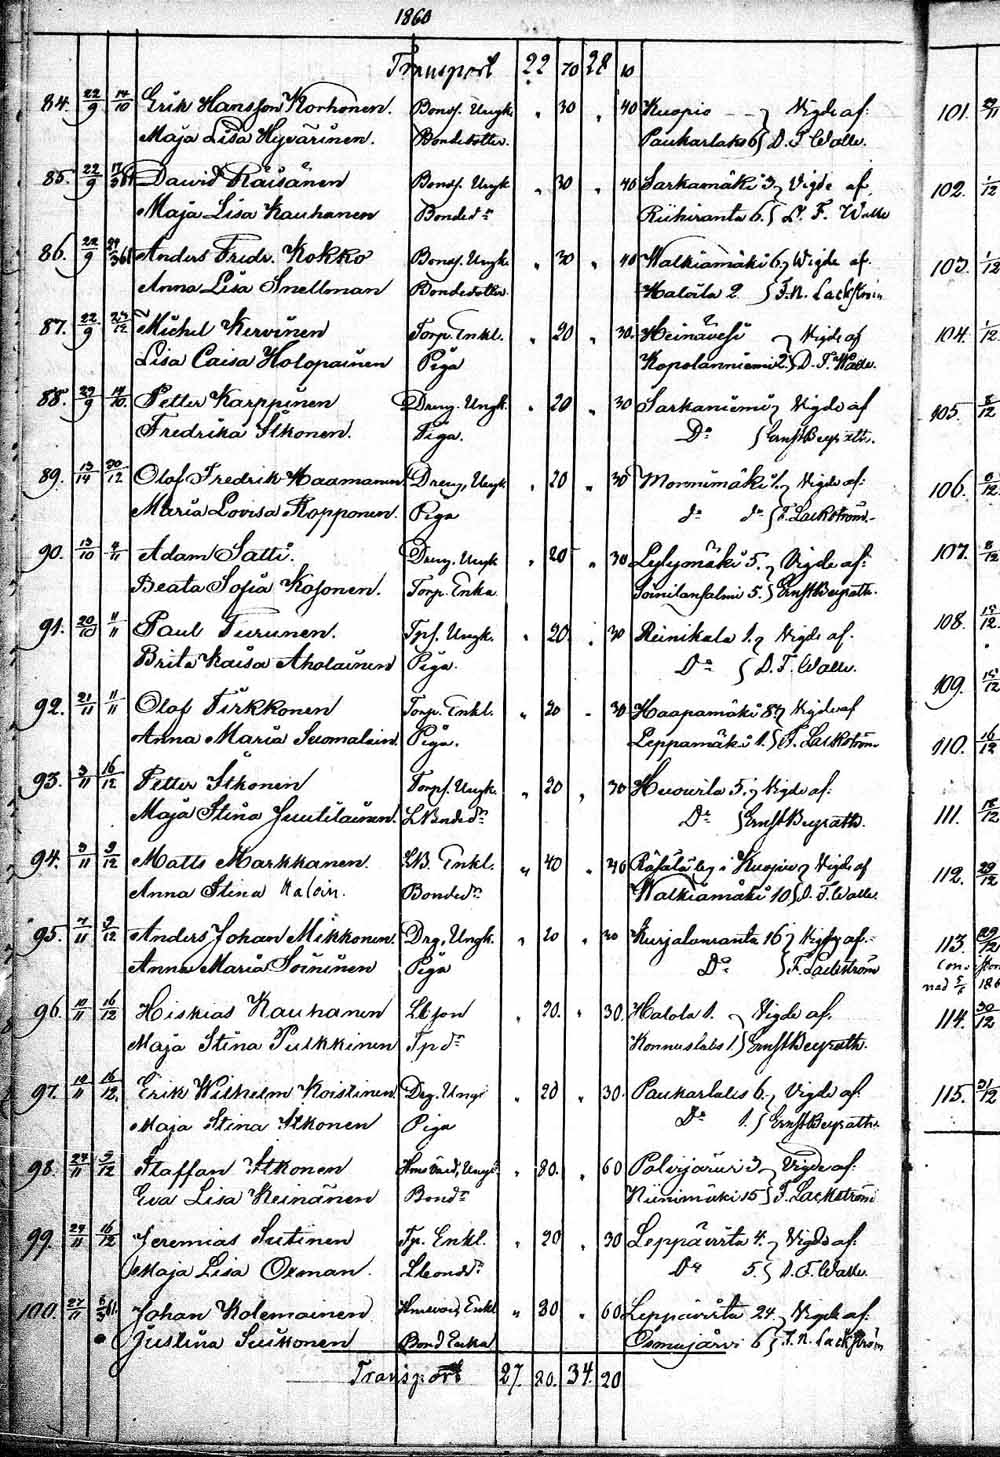 1860
Transport 22 70 28 10
84. 22/9 14/10 Erik Hansson Korhonen. Bonds. Ungk. " 30 " 40 Kuopio } Vigde af:
Maja Lisa Hyvärinen. Bondedotter. Paukarlaks 6 } D. F. Walle.
85. 22/9 Dawid Räisänen Bonds. Ungk " 30 " 40 Sarkamäki 3 } Vigde af
Maja Lisa Kauhanen Bonded:r Riihiranta 6. } D. F. Walle
86. 22/9 Anders Fredr. Kokko Bonds. Ungk. " 30 " 40 Walkiamäki 6 } Wigde af.
Anna Lisa Snellman Bondedotter. Halola 2 } F. N. Lackström
87. 22/9 Michel Kervinen Torp. Enkl. " 20 " 30. Heinävesi } Vigde af
Lisa Caisa Holopainen Piga Kopolanniemi 2. } D. F. Walle.
88. 29/9 14/10 Petter Karppinen Dreng. Ungk. " 20 " 30 Sarkaniemi } Vigde af
Fredrika Itkonen. Piga. D:o } Ernst Beyrath.
89. 13/14 30/12 Olof Fredrik Haamanen Dreng, Ungk " 20 " 30 Monnimäki 1. } Vigde af:
Maria Lovisa Kopponen. Piga d:o d:o } F. Lackström.
90. 13/10 4/11 Adam Satti. Dreng. Ungk " 20 " 30 Lylymäki 5. } Vigde af:
Beata Sofia Kosonen. Torp. Enka Soinilansalmi 5. } Ernst Beyrath.
91. 20/10 11/11 Paul Turunen. Tps. Ungk. " 20 " 30 Reinikala 1. } Vigde af.
Brita Kaisa Aholainen Piga. D:o } D. F. Walle.
92. 21/11 11/11 Olof Tirkkonen Torp. Enkl. " 20 " 30 Haapamäki 8 } Vigde af
Anna Maria Suomalain. Piga. Leppamäki 1. } F. Lackström
93. 3/11 16/12 Petter Itkonen Torps. Ungk. " 20 " 30 Huovila 5. } Vigde af:
Maja Stina Juutilainen. L. Bonded:r D:o } Ernst Beyrath.
94. 3/11 9/12 Matts Markkanen. LB. Enkl. " 40 " 40 Räsälä by i Kuopio } Vigde af
Anna Stina Haloin. Bonded:r Walkiamäki 10 } D. F. Walle.
95. 7/11 9/12 Anders Johan Mikkonen. Drg, Ungk. " 20 " 30 Kurjalanranta 16 } Vigde af.
Anna Maria Soininen Piga D:o } F. Lackström
96. 10/11 16/12 Hiskias Kauhanen Lbson " 20. " 30. Halola 1. } Vigde af.
Maja Stina Pulkkinen Tpd:r Konnuslaks 1 } Ernst Beyrath.
97. 10/11 16/12. Erik Wilhelm Koistinen Drg. Ungk " 20 " 30. Paukarlaks 6. } Vigde af.
Maja Stina Itkonen Piga D:o 1. } Ernst Beyrath.
98. 24/11 9/12 Staffan Itkonen Ungk. " 30. " 60 Polvijärvi 3 } Vigde af:
Eva Lisa Keinänen Bond:r Kinimäki 15 } F. Lackström
99. 24/11 16/12 Jeremias Sutinen Tp. Enkl. " 20 " 30 Leppävirta 4. } Vigde af:
Maja Lisa Oxman. Lbond:r D:o 5. } D. F. Walle
100. 27/11 Johan Kolemainen Enkl " 30 " 60 Leppävirta 24. } Vigde af.
Justina Suikonen Bond Enka Osmajärvi 6 } F. N. Lackström
Transport 27. 20. 34. 20
101. 29/11
102. 1/12
103. 1/12
104. 1/12
105. 8/12
106. 8/12
107. 8/12
108. 15/12
109. 15/12
110. 16/12
111. 18/12
112. 29/12
113. 29/12
114. 30/12
115. 31/12